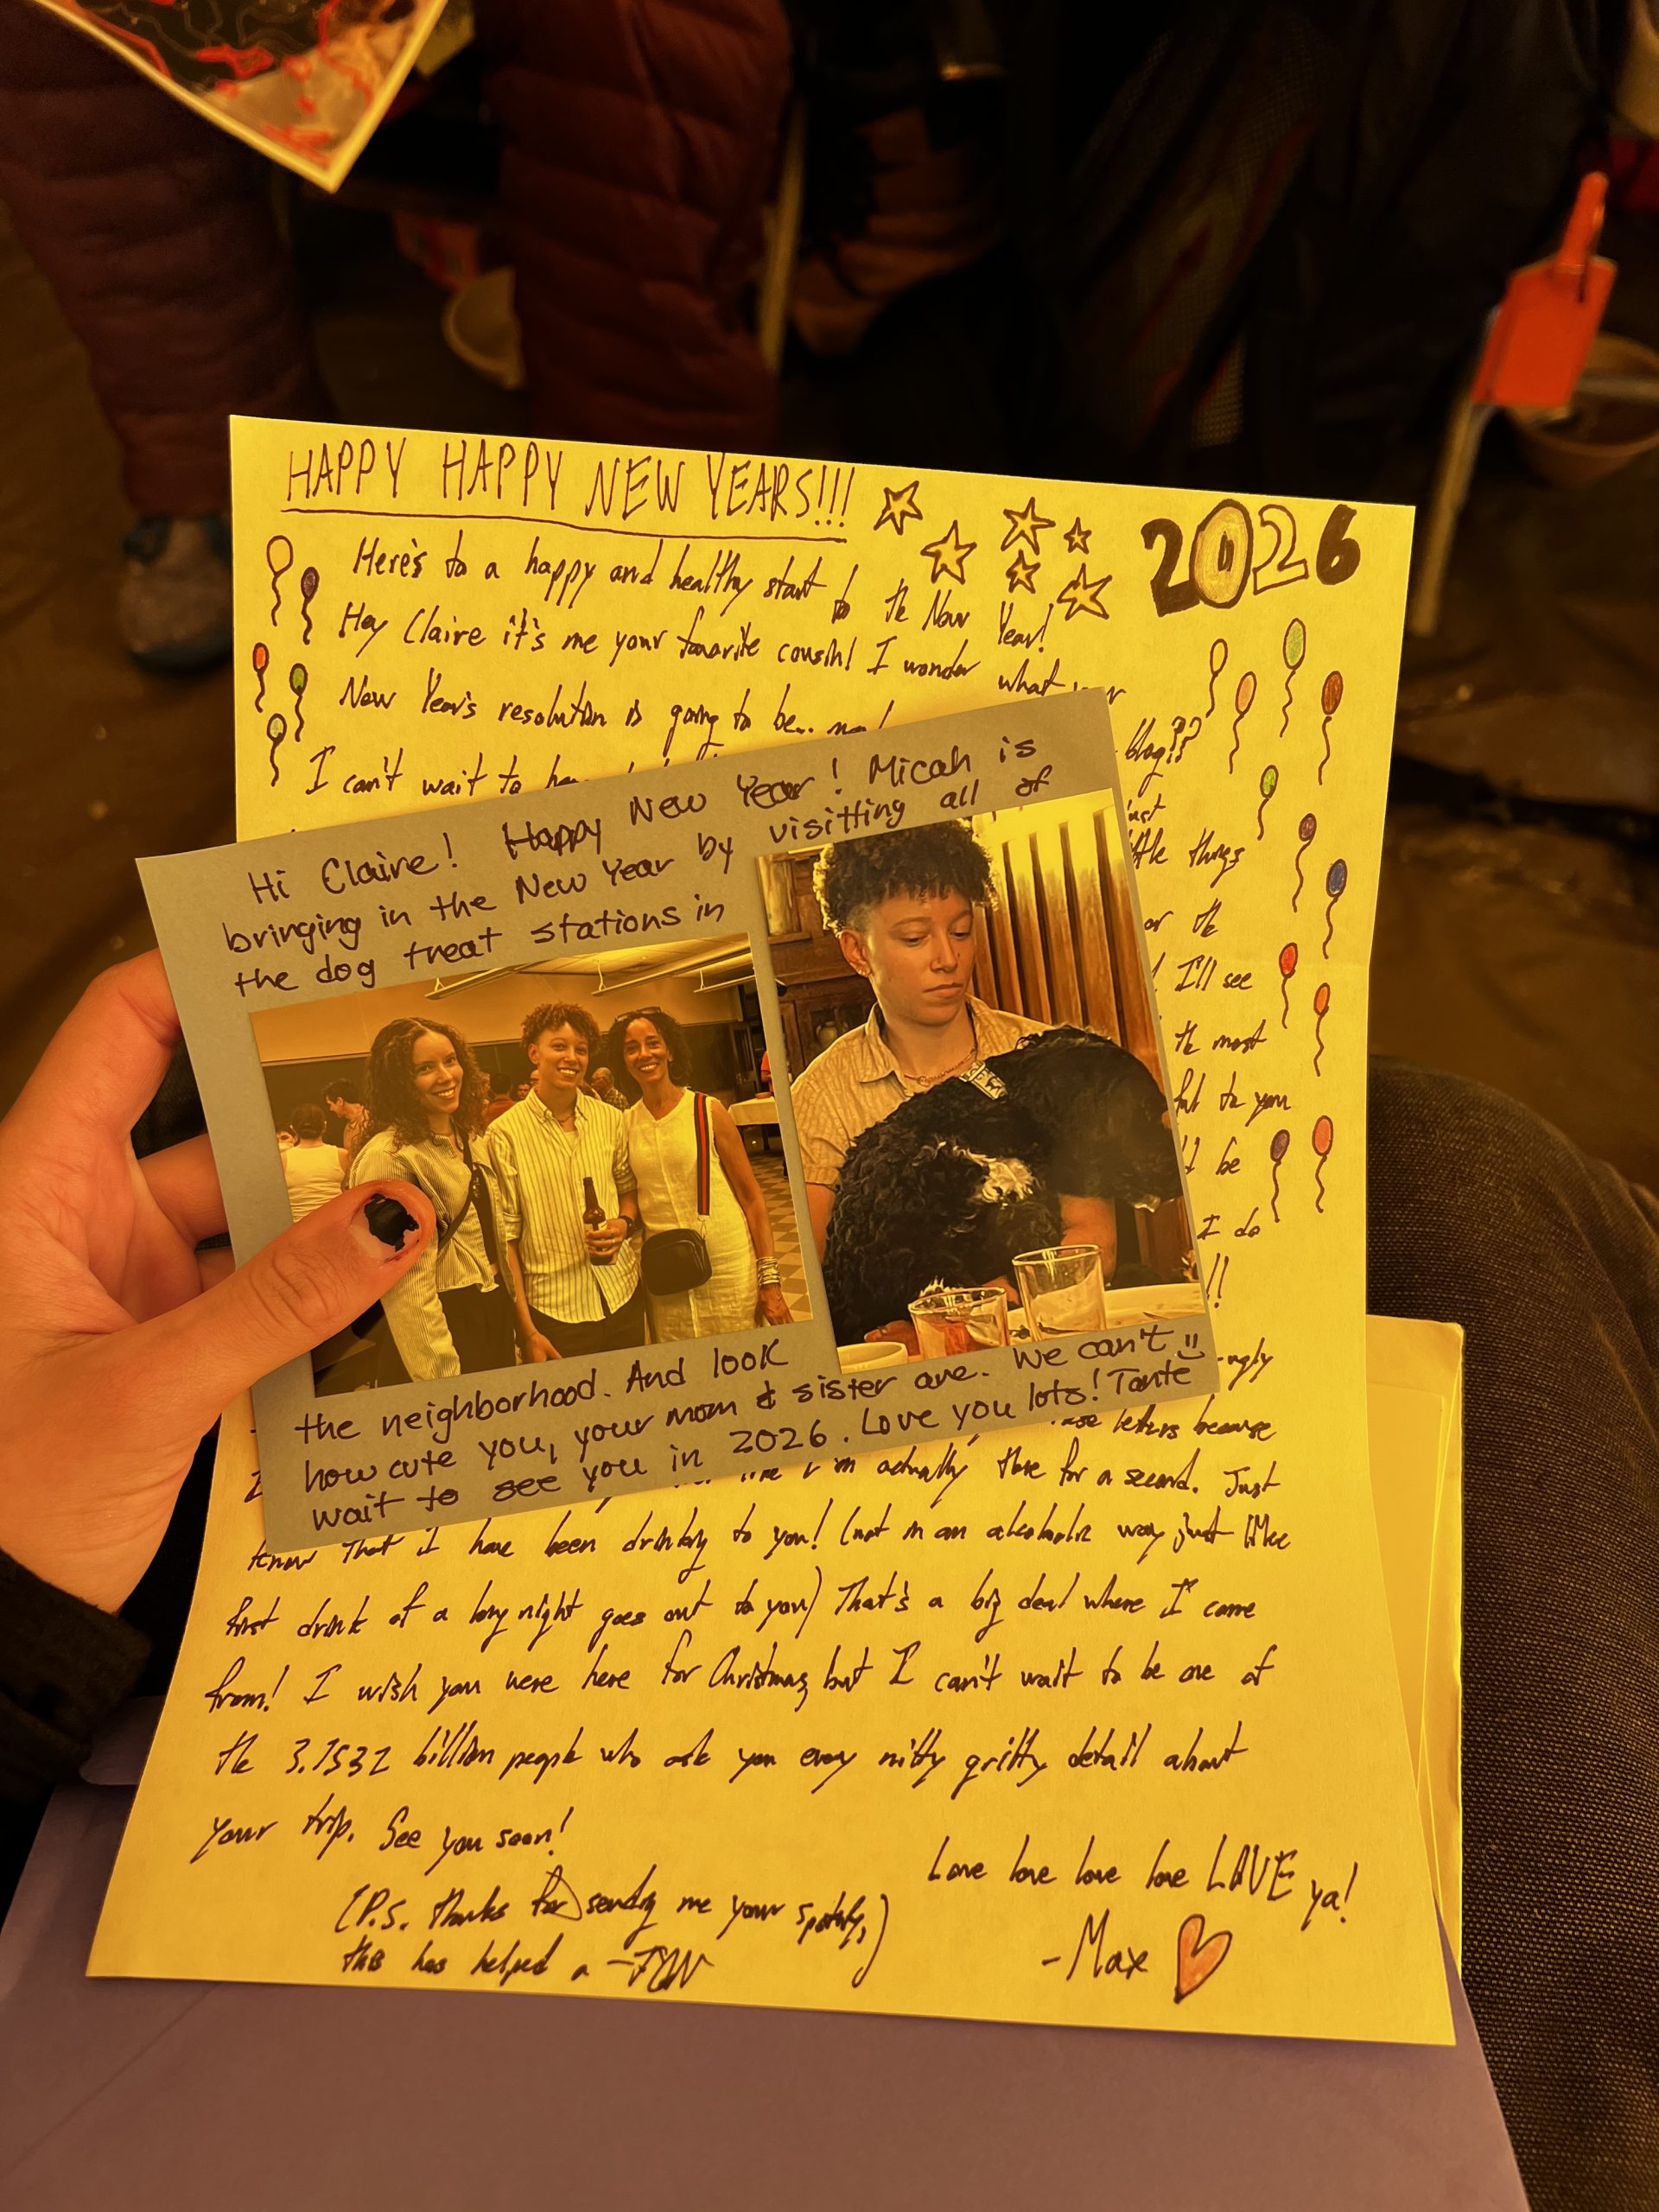 HAPPY HAPPY NEW YEARS!!!
2026
Here's to a happy and healthy start to the New Year!
Hey Claire it's me your favorite cousin! I wonder what
New Year's resolution is going to be...
blog!??
I can't wait to
just
things
or the
I'll see
the most
to you
be
I do
!!
Hi Claire! Happy New Year! Micah is
bringing in the New Year by visitting all of
the dog treat stations in
the neighborhood. And look
how cute you, your mom & sister are. We can't
wait to see you in 2026. Love you lots! Tante
letters because
I'm actually there for a second. Just
know that I have been drinking to you! (not in an alcoholic way just like
first drink of a long night goes out to you) That's a big deal where I come
from! I wish you were here for Christmas, but I can't wait to be one of
the 3.1532 billion people who ask you every nitty gritty detail about
your trip. See you soon!
(P.S. thanks for sending me your spotify,
this has helped a )
Love love love love LOVE ya!
-Max